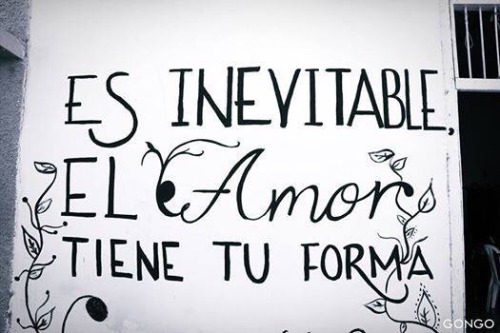 ES INEVITABLE,
EL Amor
TIENE TU FORMA
GONGO